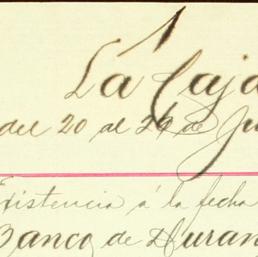 La Caja
del 20 al 26 de Ju
Existencia á la fecha
Banco de Durang